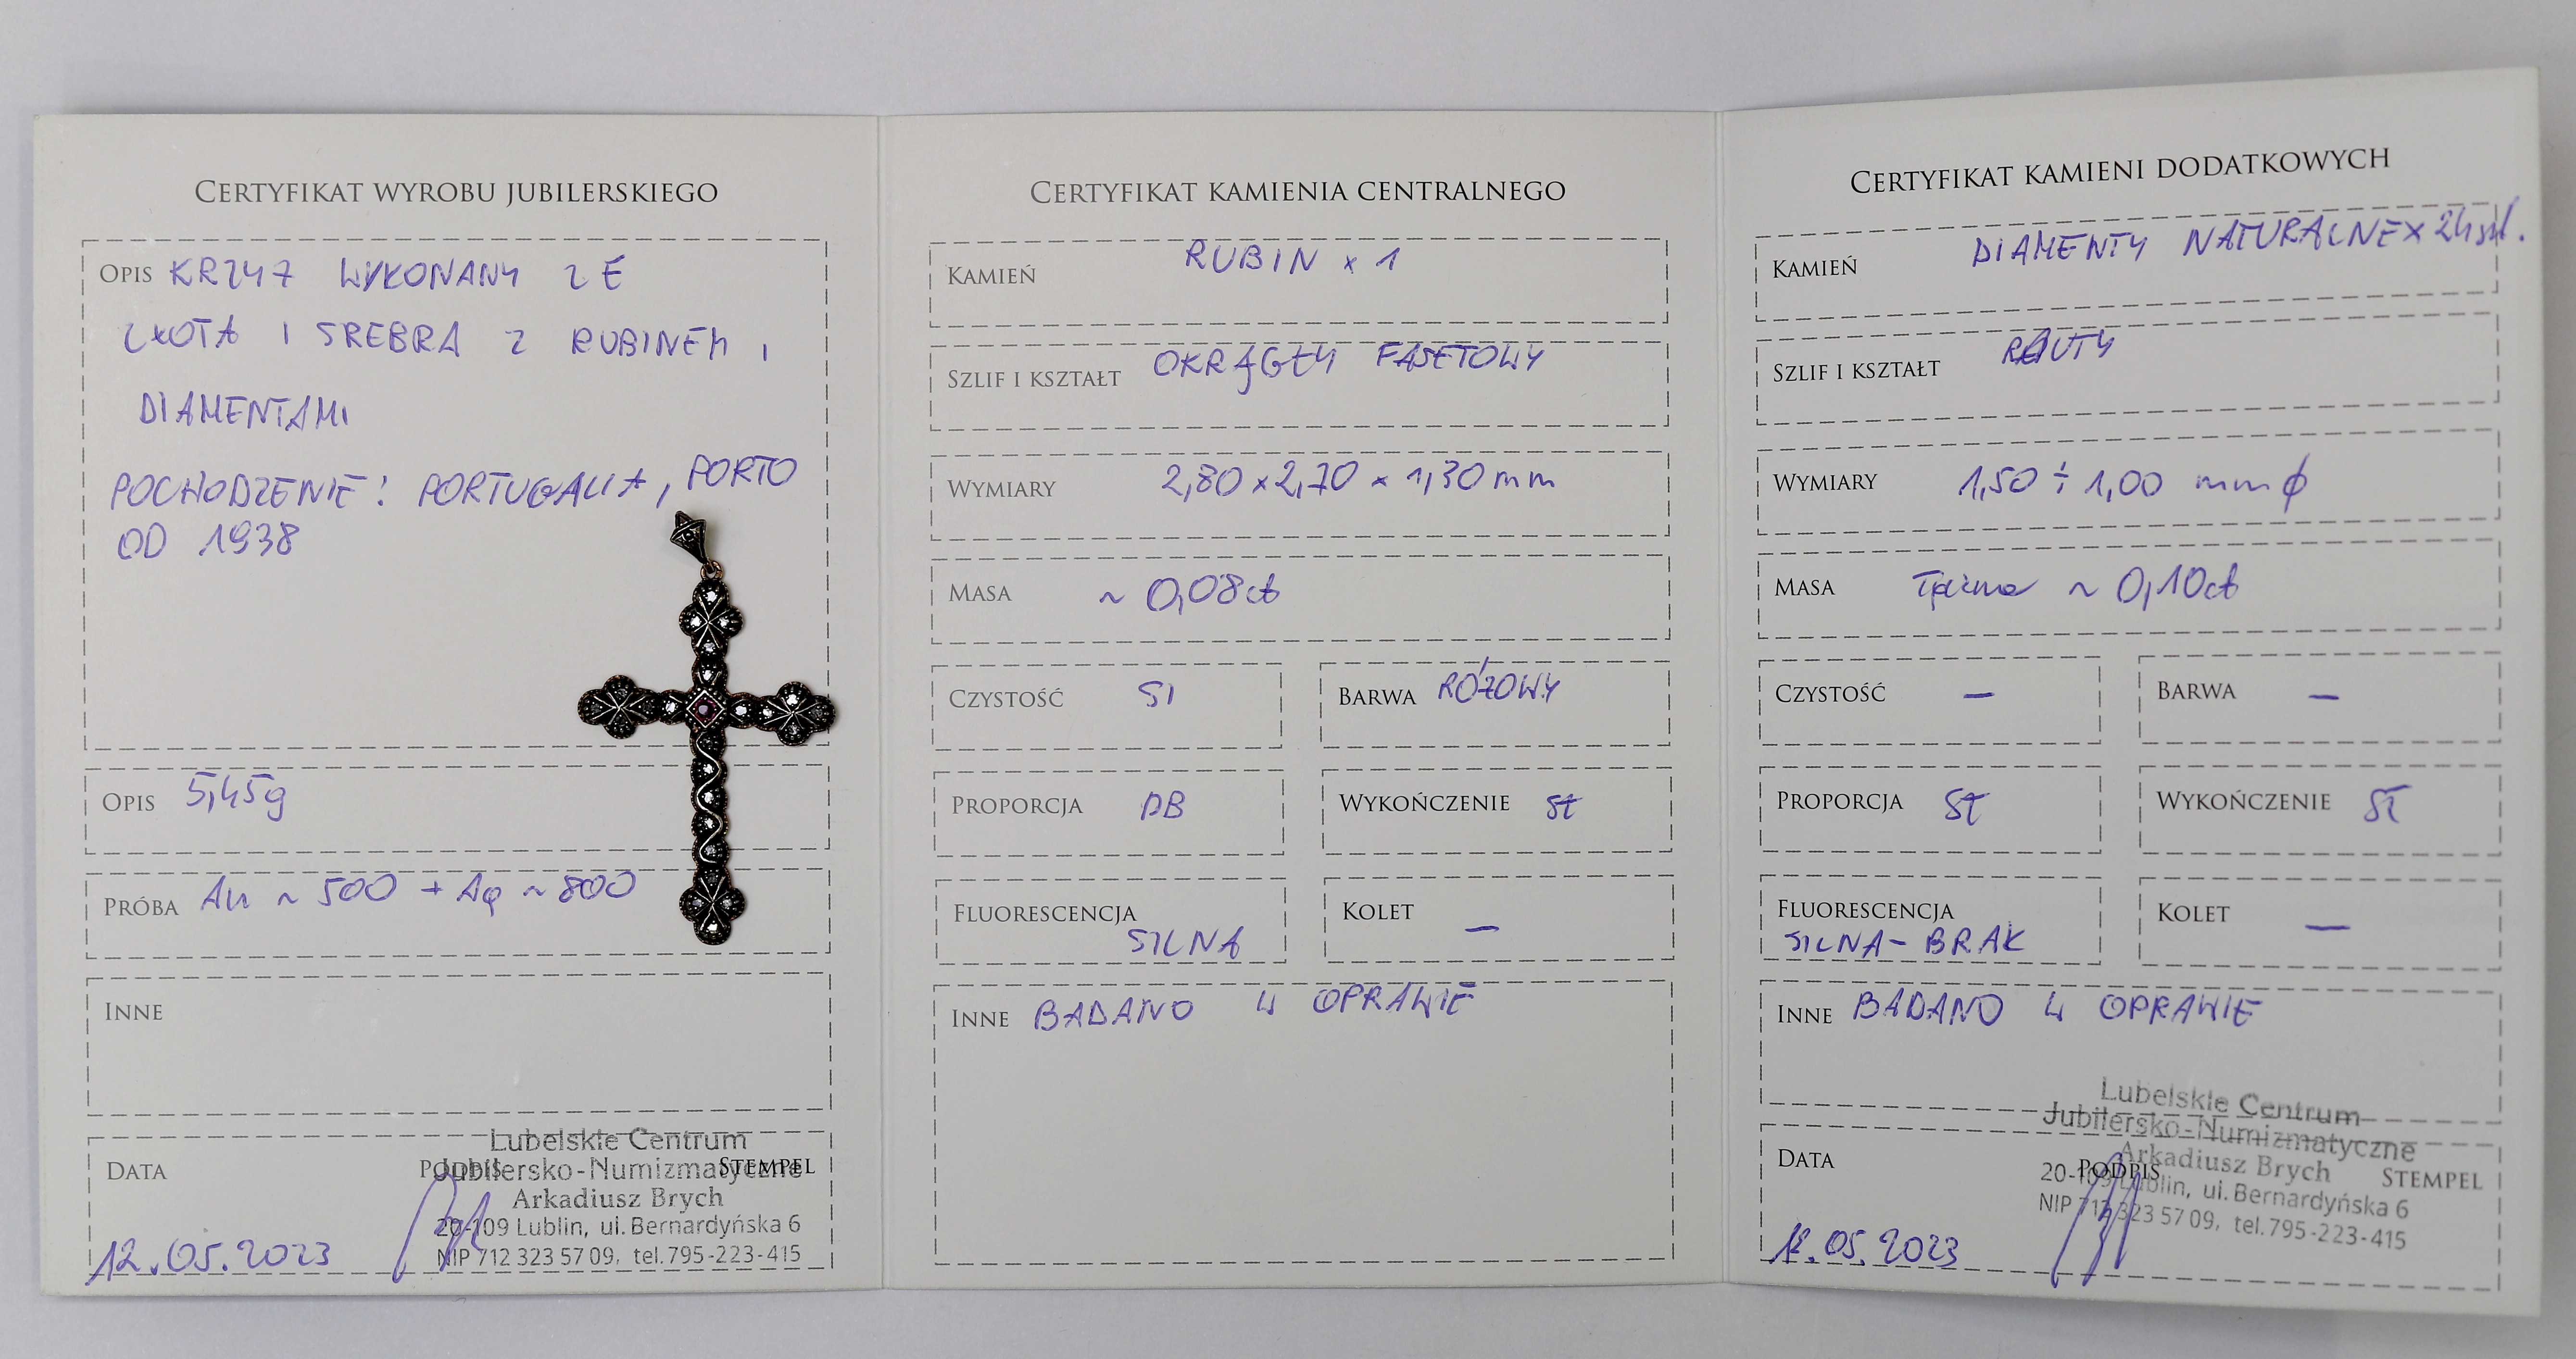 CERTYFIKAT WYROBU JUBILERSKIEGO
OPIS KRZYŻ WYKONANY ZE
ZŁOTA I SREBRA Z RUBINEM I
DIAMENTAMI
POCHODZENIE: PORTUGALIA, PORTO
OD 1938
OPIS 5,45g
PRÓBA Au ~ 500 + Ag ~ 800
INNE
DATA PODPIS STEMPEL
12.05.2023
Lubelskie Centrum
Jubilersko-Numizmatyczne
Arkadiusz Brych
20-109 Lublin, ul. Bernardyńska 6
NIP 712 323 57 09, tel. 795-223-415
CERTYFIKAT KAMIENIA CENTRALNEGO
KAMIEŃ RUBIN x 1
SZLIF I KSZTAŁT OKRĄGŁY FASETOWY
WYMIARY 2,80 x 2,70 x 1,30 mm
MASA ~ 0,08 ct
CZYSTOŚĆ SI BARWA RÓŻOWY
PROPORCJA DB WYKOŃCZENIE ST
FLUORESCENCJA KOLET —
SILNA
INNE BADANO W OPRAWIE
CERTYFIKAT KAMIENI DODATKOWYCH
KAMIEŃ DIAMENTY NATURALNE x 24 szt.
SZLIF I KSZTAŁT RAUTY
WYMIARY 1,50 ÷ 1,00 mm ϕ
MASA Łączna ~ 0,10 ct
CZYSTOŚĆ — BARWA —
PROPORCJA ST WYKOŃCZENIE ST
FLUORESCENCJA KOLET —
SILNA - BRAK
INNE BADANO W OPRAWIE
DATA PODPIS STEMPEL
12.05.2023
Lubelskie Centrum
Jubilersko-Numizmatyczne
Arkadiusz Brych
20-109 Lublin, ul. Bernardyńska 6
NIP 712 323 57 09, tel. 795-223-415